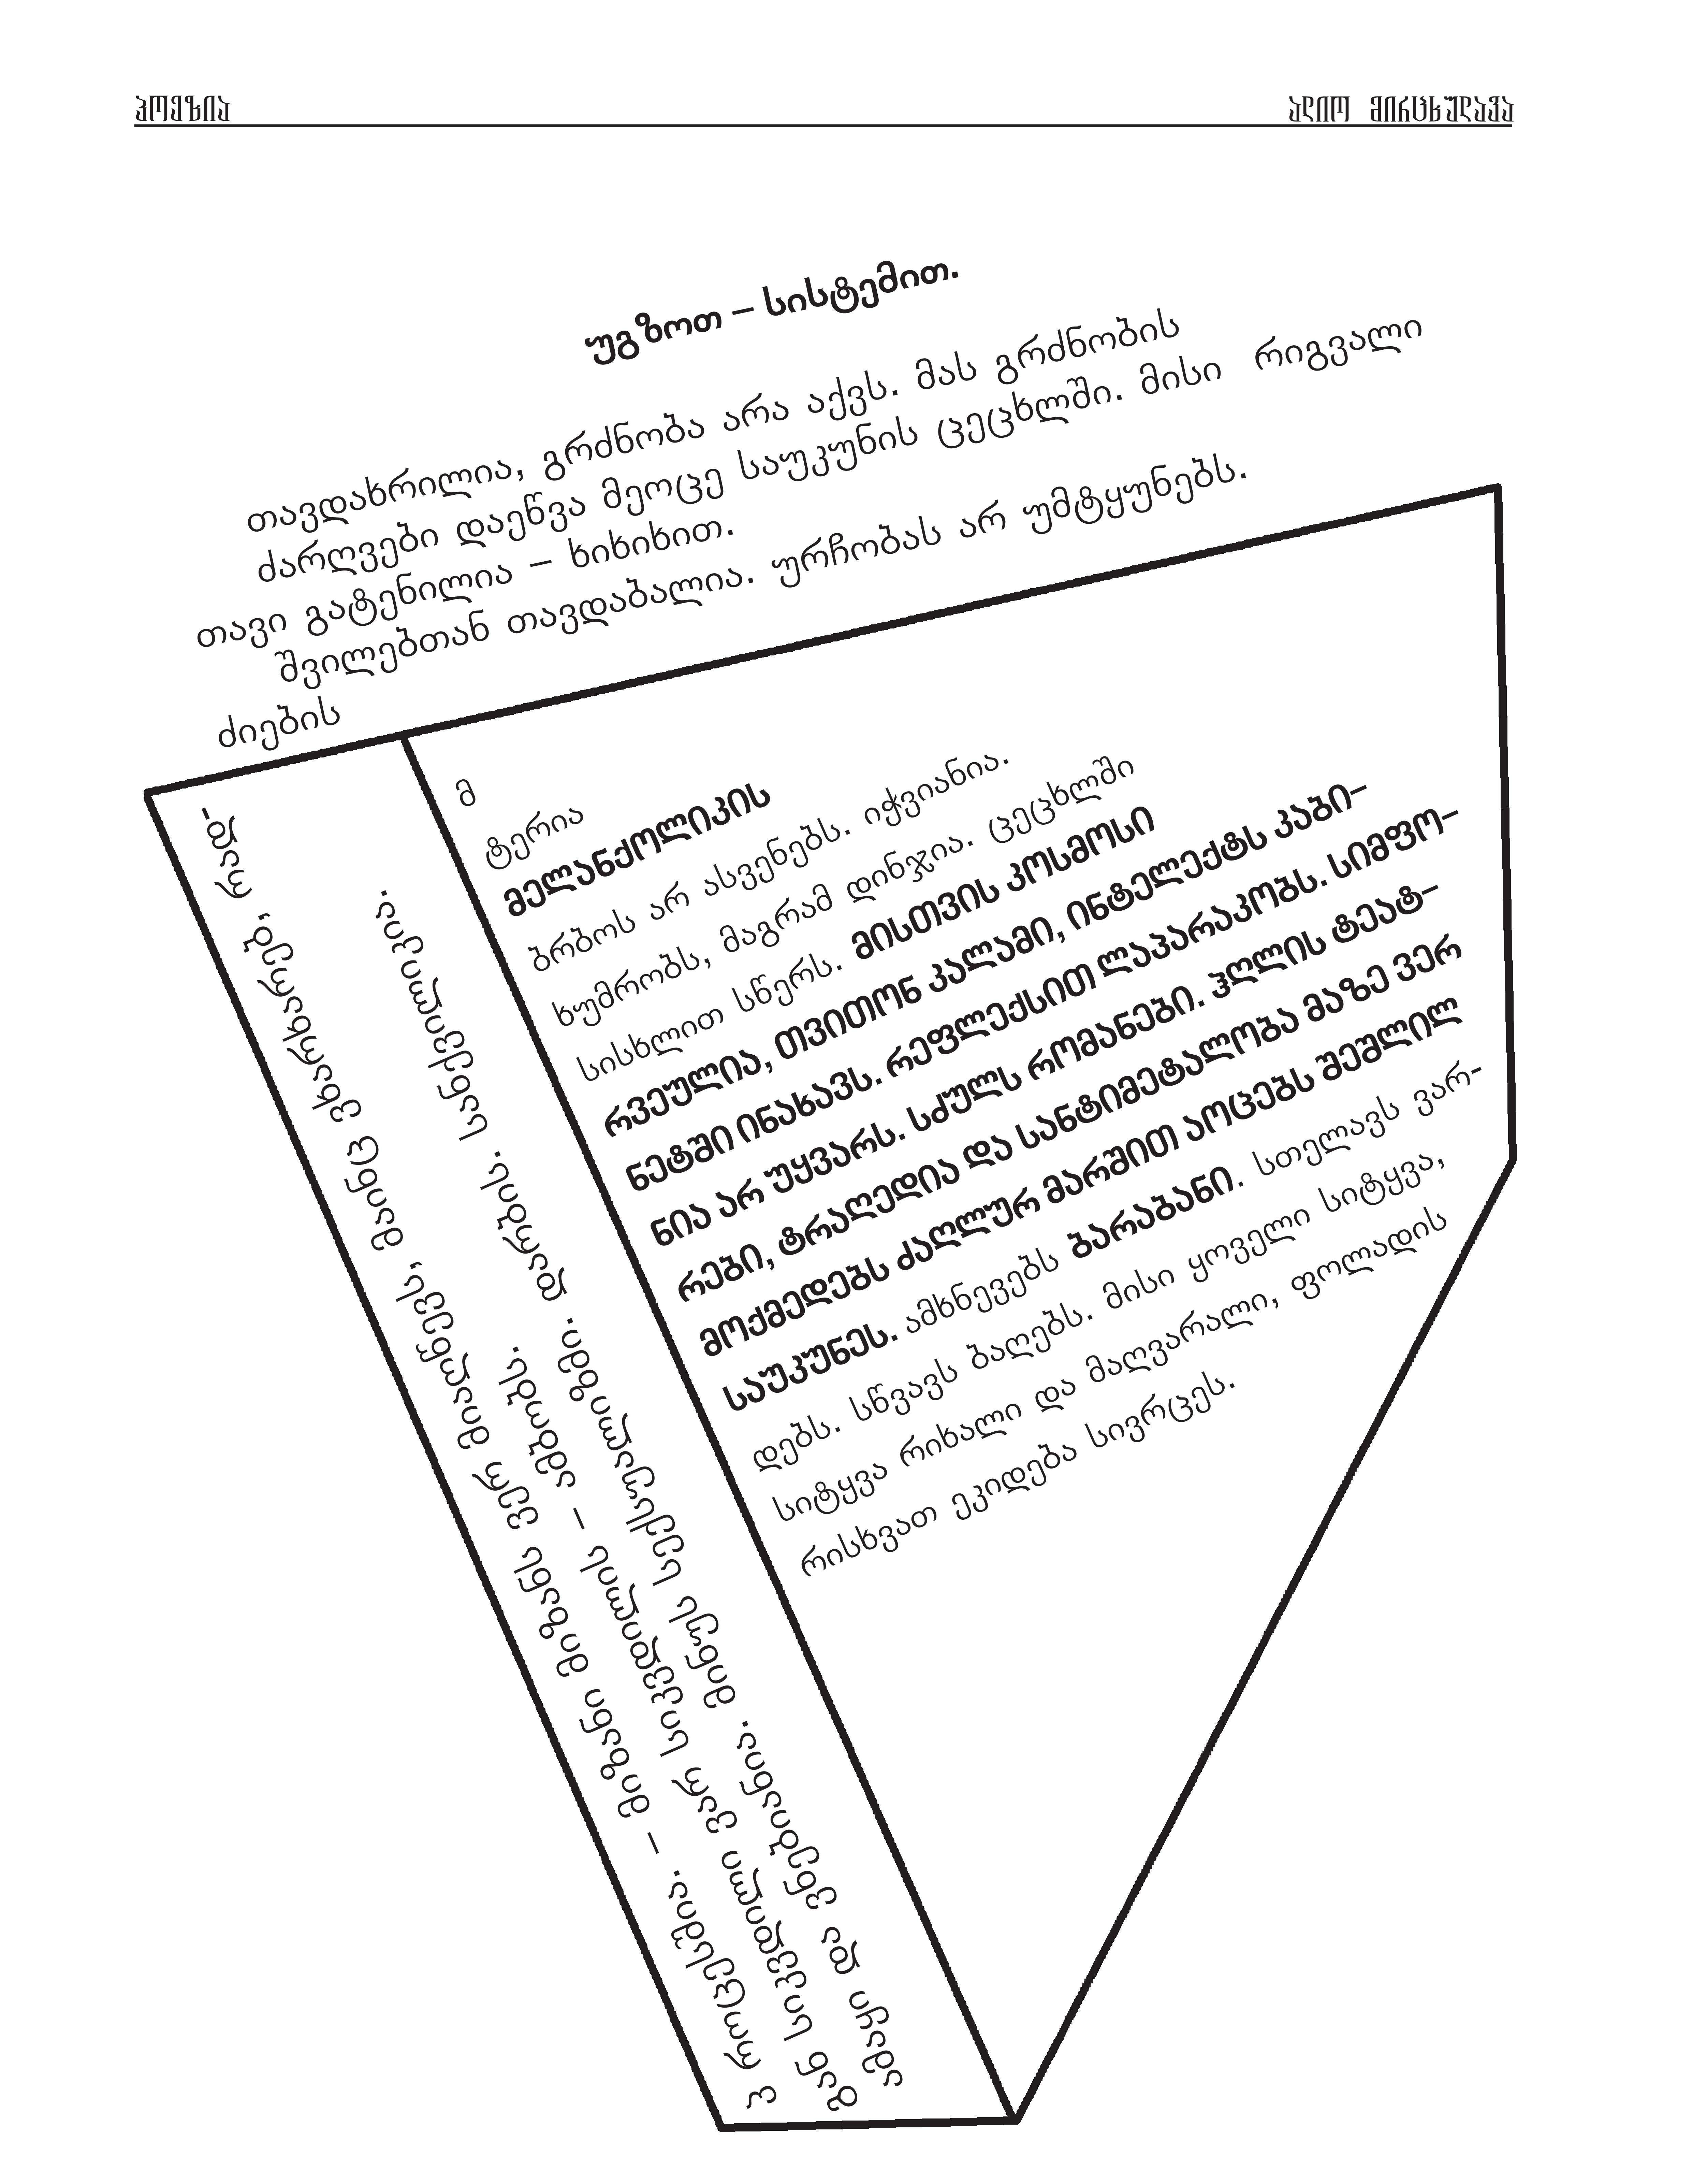 პოეზია
ალიო მირცხულავა
უგზოთ – სისტემით.
თავდახრილია, გრძნობა არა აქვს. მას გრძნობის
ძარღვები დაეწვა მეოცე საუკუნის ცეცხლში. მისი რიგვალი
თავი გატენილია – ხიხიხით.
შვილებთან თავდაბალია. ურჩობას არ უმტყუნებს.
ძიების
მ
ტერია
მელანქოლიკის
ბრბოს არ ასვენებს. იჭვიანია.
ხუმრობს, მაგრამ დინჯია. ცეცხლში
სისხლით სწერს. მისთვის კოსმოსი
რვეულია, თვითონ კალამი, ინტელექტს კაბი–
ნეტში ინახავს. რეფლექსით ლაპარაკობს. სიმფო–
ნია არ უყვარს. სძულს რომანები. ჰღლის ტეატ–
რები, ტრაღედია და სანტიმეტალობა მაზე ვერ
მოქმედებს ძაღლურ მარშით აოცებს შეშლილ
საუკუნეს. ამხნევებს ბარაბანი. სთელავს ვარ-
დებს. სწვავს ბაღებს. მისი ყოველი სიტყვა,
სიტყვა რიხალი და მაღვარალი, ფოლადის
რისხვათ ეკიდება სივრცეს.
პროცესშია. – მიზანი მიზანს ვერ მიაღწევს, მაინც ვხარხარებ, რად-
გან სიკვდილი ვარ სიკვდილის – ამბობს.
ამაყი და ვნებიანია. მინუს სექსუალიზმი. დარბის. სანქვილკია.